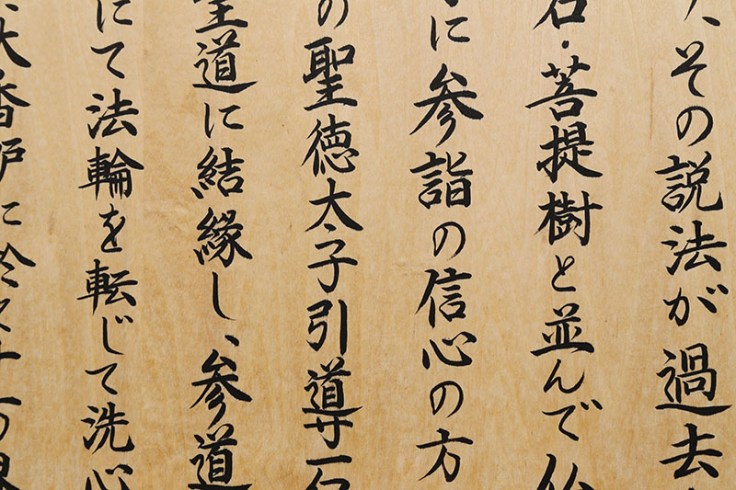 その説法が過去
石・菩提樹と並んで仏
に参詣の信心の方
の聖徳太子引導石
聖道に結縁し、参道
にて法輪を転じて洗心
大香炉に